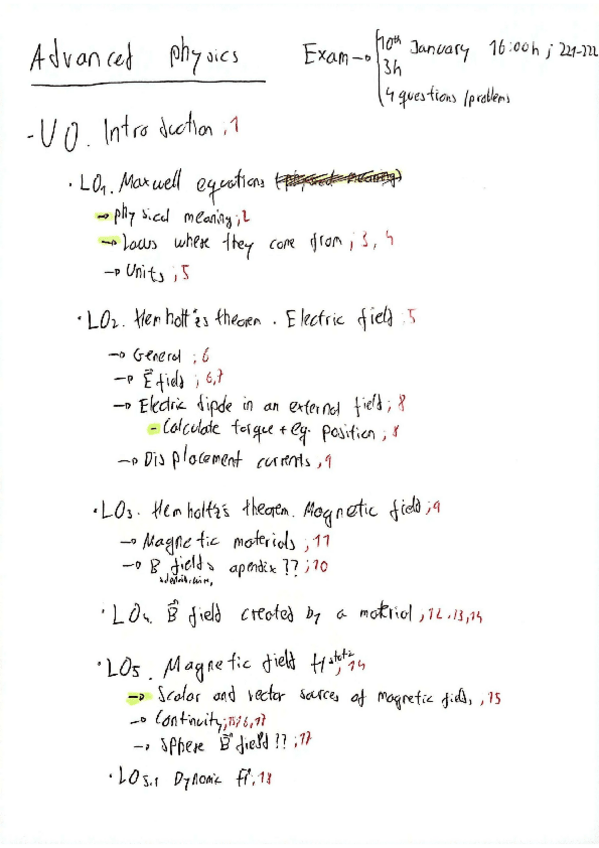 Advanced physics
Exam → 10th January 16:00h ; 221-222
3h
4 questions / problems
- U0. Introduction ; 1
· LO1. Maxwell equations
→ physical meaning ; 2
→ Laws where they come from ; 3, 4
→ Units ; 5
· LO2. Hemholtz's theorem. Electric field ; 5
→ General ; 6
→ E⃗ field ; 6,7
→ Electric dipole in an external field ; 8
- Calculate torque + eq. position ; 8
→ Displacement currents , 9
· LO3. Hemholtz's theorem. Magnetic field ; 9
→ Magnetic materials ; 11
→ B fields apendix ?? ; 10
· LO4. B⃗ field created by a material , 12, 13, 14
· LO5. Magnetic field H static ; 14
→ Scalar and vector sources of magnetic field , 15
→ Continuity ; 15, 16, 17
→ Sphere B⃗ field ?? ; 17
· LO5.1 Dynamic H⃗ ; 18